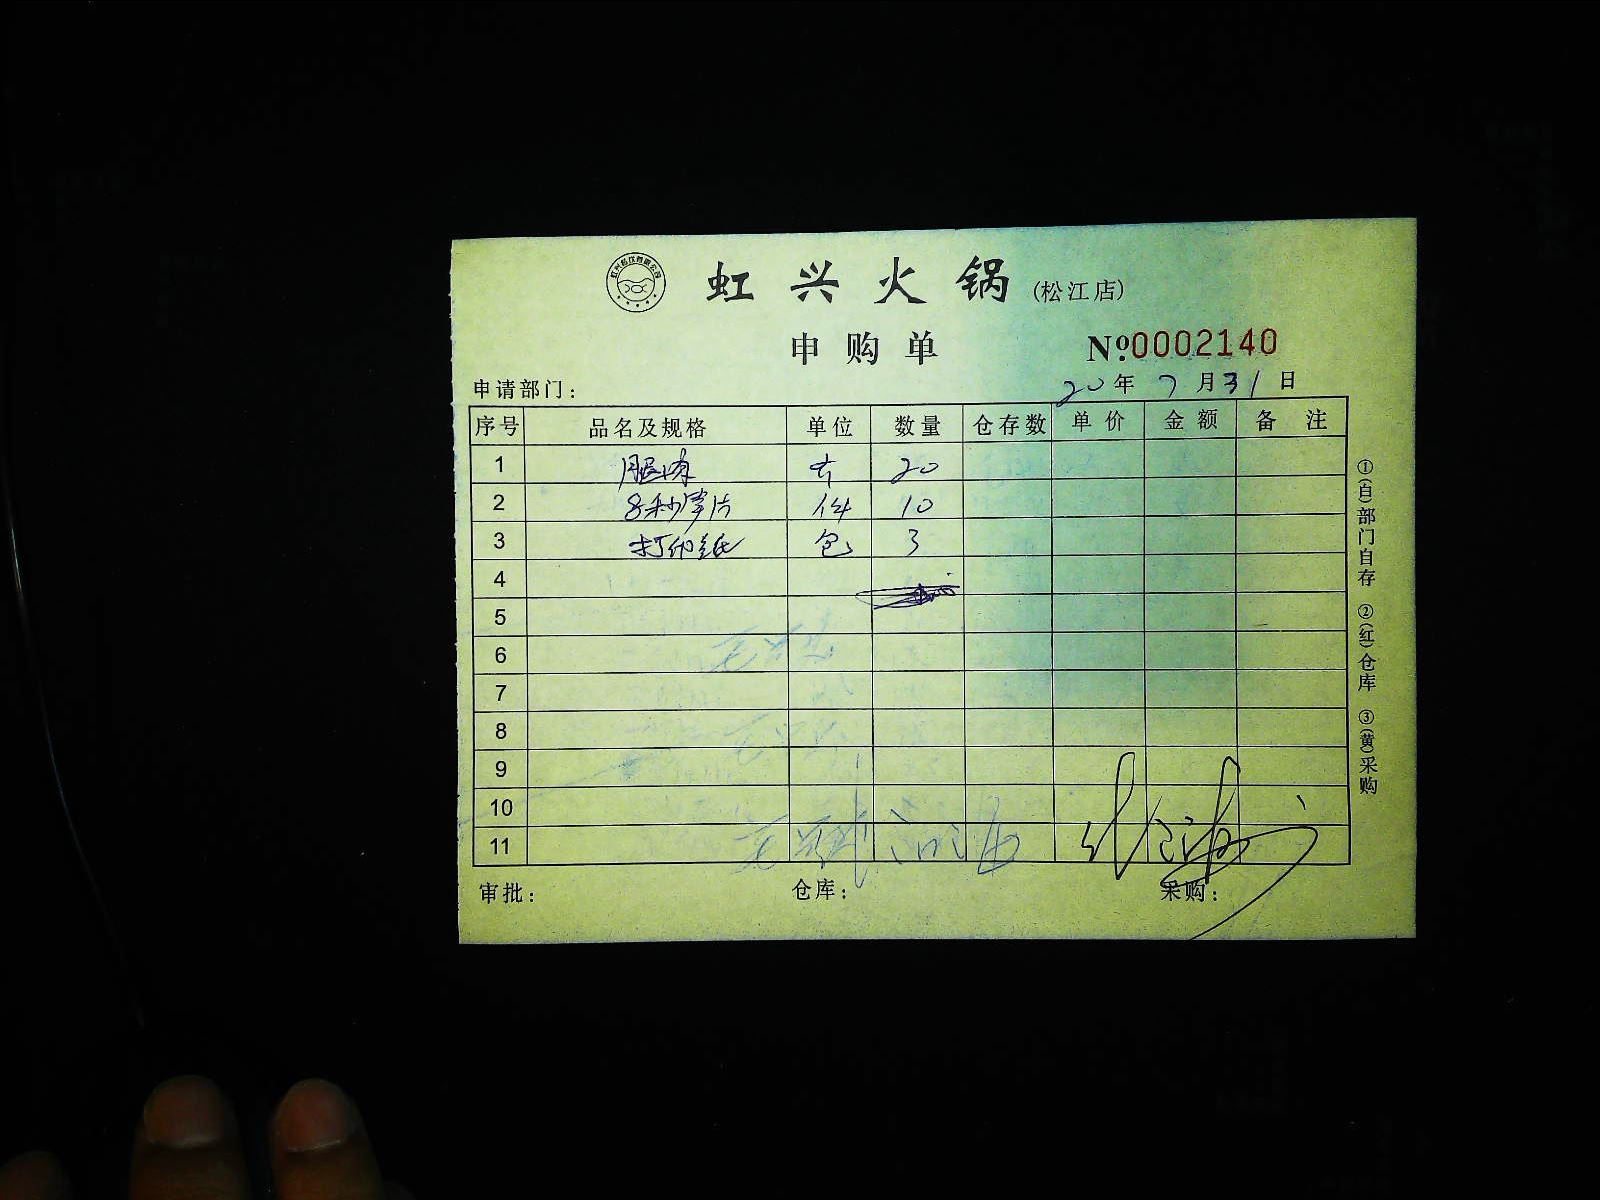 虹兴火锅(松江店)
申购单 Nº0002140
申请部门: 20年7月31日
序号 品名及规格 单位 数量 仓存数 单价 金额 备注
1 腿肉 斤 20
2 8秒笋片 件 10
3 打印纸 包 3
4
5
6
7
8
9
10
11
审批: 仓库: 采购:
①(白)部门自存 ②(红)仓库 ③(黄)采购